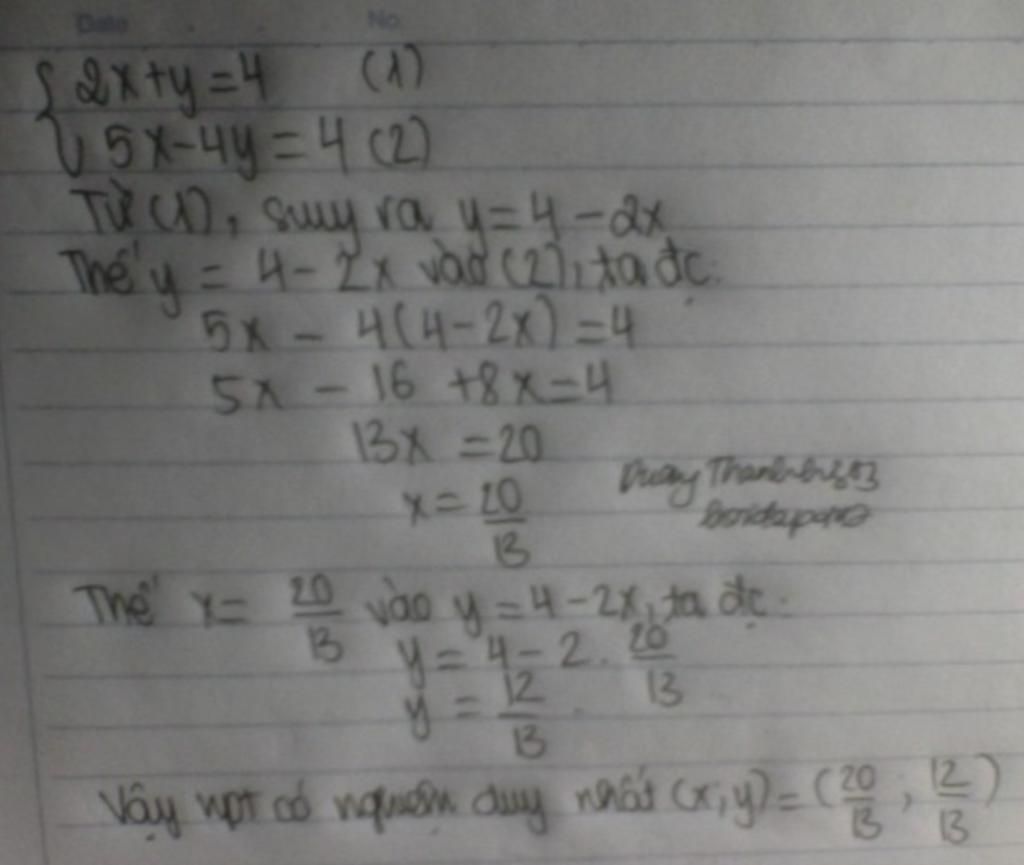 Date No
{ 2x+y=4 (1)
5x-4y=4 (2)
Từ (1), suy ra y=4-2x
Thế y = 4-2x vào (2), ta đc:
5x - 4(4-2x)=4
5x - 16 +8x=4
13x =20
x=20/13
Thế x= 20/13 vào y=4-2x, ta đc:
y=4-2.20/13
y=12/13.
Vậy hpt có nghiệm duy nhất (x,y)=(20/13; 12/13)